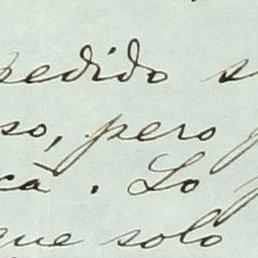 pedido s
so, pero
ca. Lo
que solo